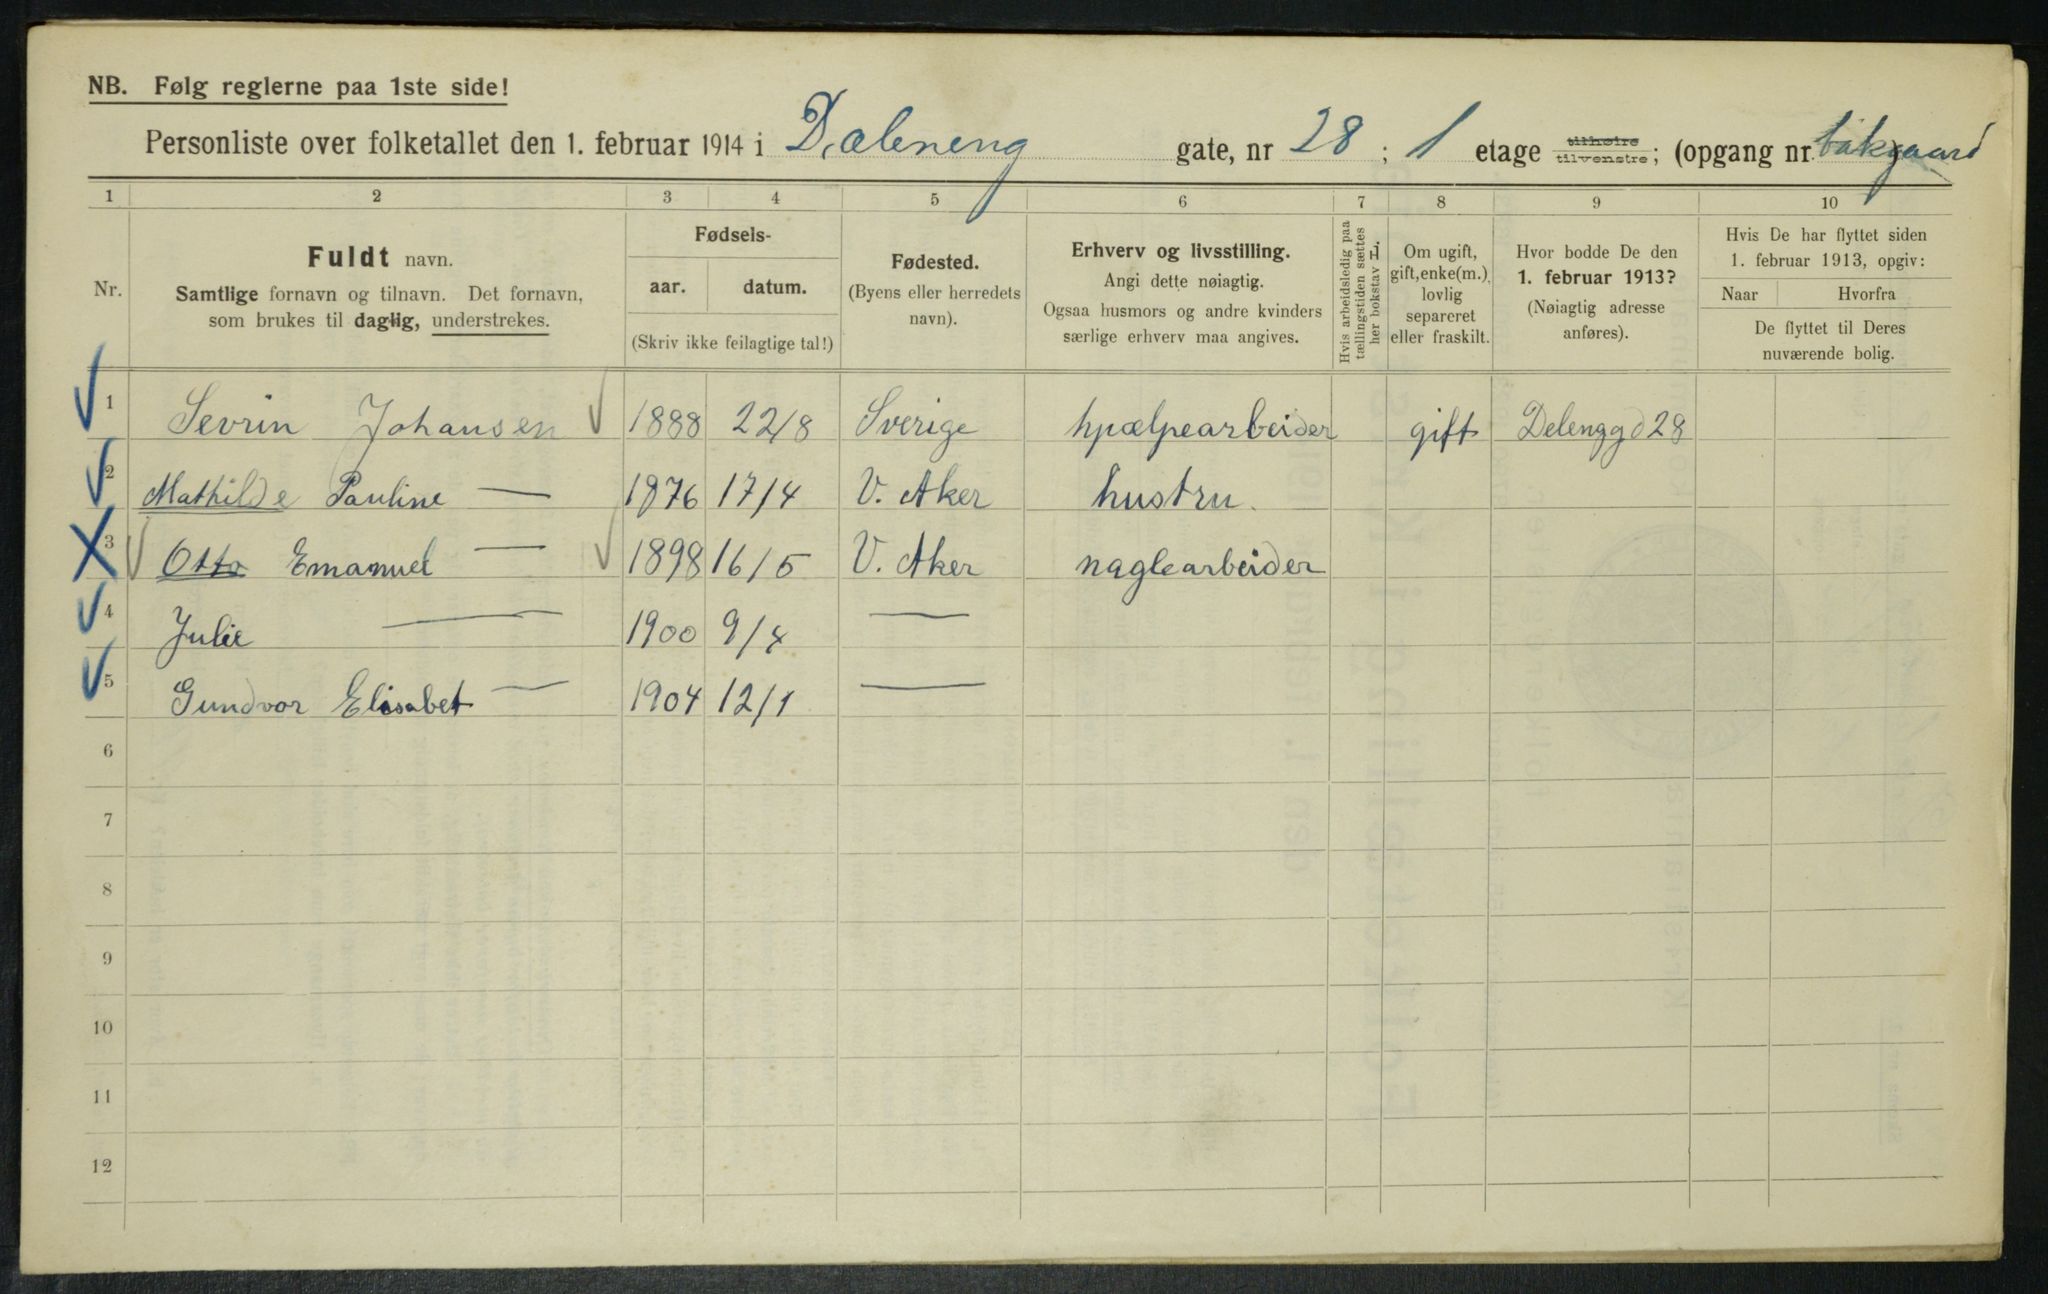 NB. Følg reglerne paa 1ste side!
Personliste over folketallet den 1. februar 1914 i Dæleneng gate, nr 28 ; 1 etage tilhøire tilvenstre; (opgang nr. bakgaard
1 2 3 4 5 6 7 8 9 10
Nr.
Fuldt navn.
Samtlige fornavn og tilnavn. Det fornavn,
som brukes til daglig, understrekes.
Fødsels-
aar. datum.
(Skriv ikke feilagtige tal!)
Fødested.
(Byens eller herredets
navn).
Erhverv og livsstilling.
Angi dette nøiagtig.
Ogsaa husmors og andre kvinders
særlige erhverv maa angives.
Hvis arbeidsledig paa
tællingstiden sættes
her bokstav L
Om ugift,
gift, enke(m.),
lovlig
separeret
eller fraskilt.
Hvor bodde De den
1. februar 1913?
(Nøiagtig adresse
anføres).
Hvis De har flyttet siden
1. februar 1913, opgiv:
Naar Hvorfra
De flyttet til Deres
nuværende bolig.
1 Sevrin Johansen 1888 22/8 Sverige hpælpearbeider gift Delenggd 28
2 Mathilde Pauline — 1876 17/4 V. Aker hustru.
3 Otto Emanuel — 1898 16/5 V. Aker naglearbeider
4 Julie — 1900 9/4 —
5 Gundvor Elisabet — 1904 12/1 —
6
7
8
9
10
11
12